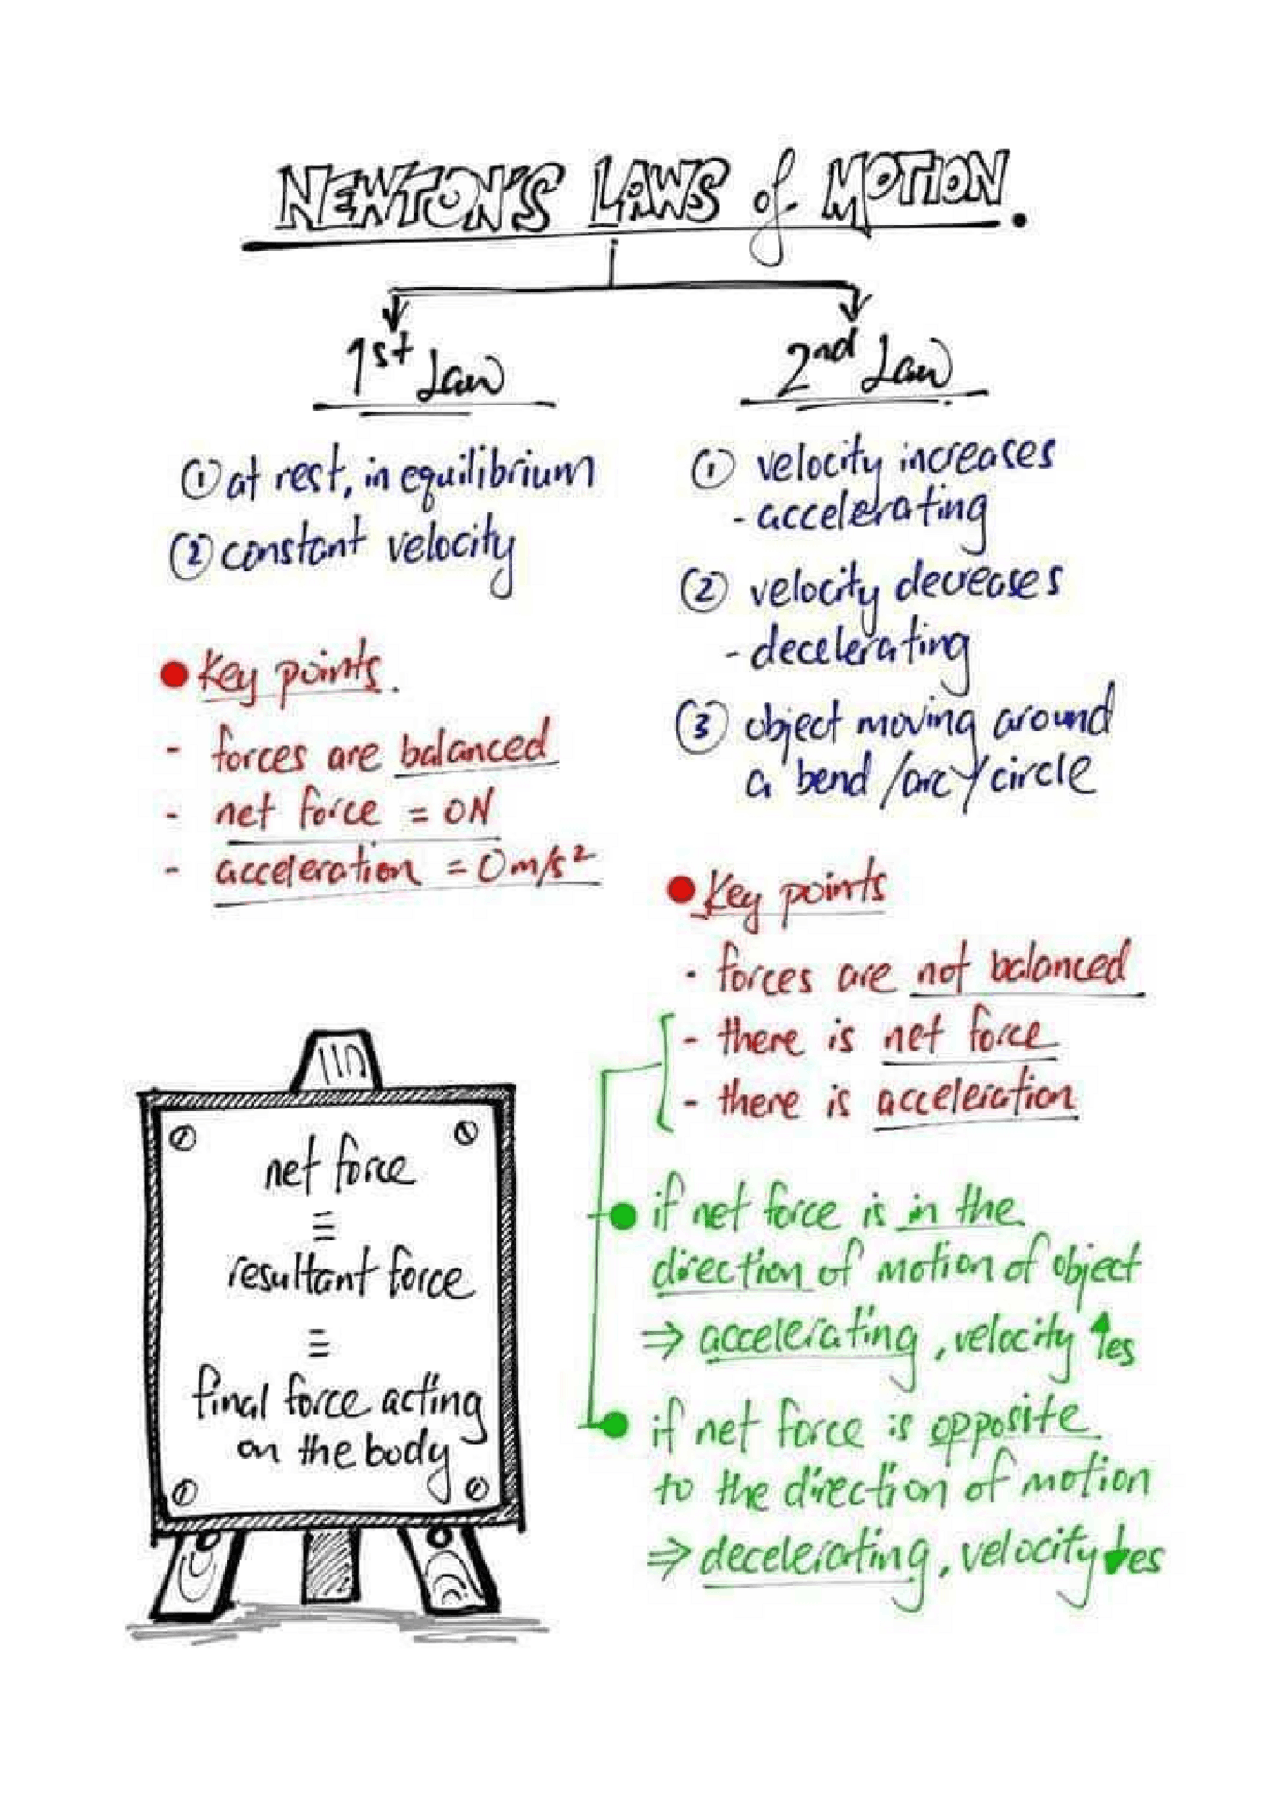 NEWTON'S LAWS of MOTION.
1st Law
① at rest, in equilibrium
② constant velocity
● Key points.
- forces are balanced
- net force = 0N
- acceleration = 0m/s²
2nd Law
① velocity increases
- accelerating
② velocity decreases
- decelerating
③ object moving around
a bend /arc/circle
● Key points
- forces are not balanced
- there is net force
- there is acceleration
● if net force is in the
direction of motion of object
⇒ accelerating, velocity ↑es
● if net force is opposite
to the direction of motion
⇒ decelerating, velocity ↓es
net force
≡
resultant force
≡
final force acting
on the body